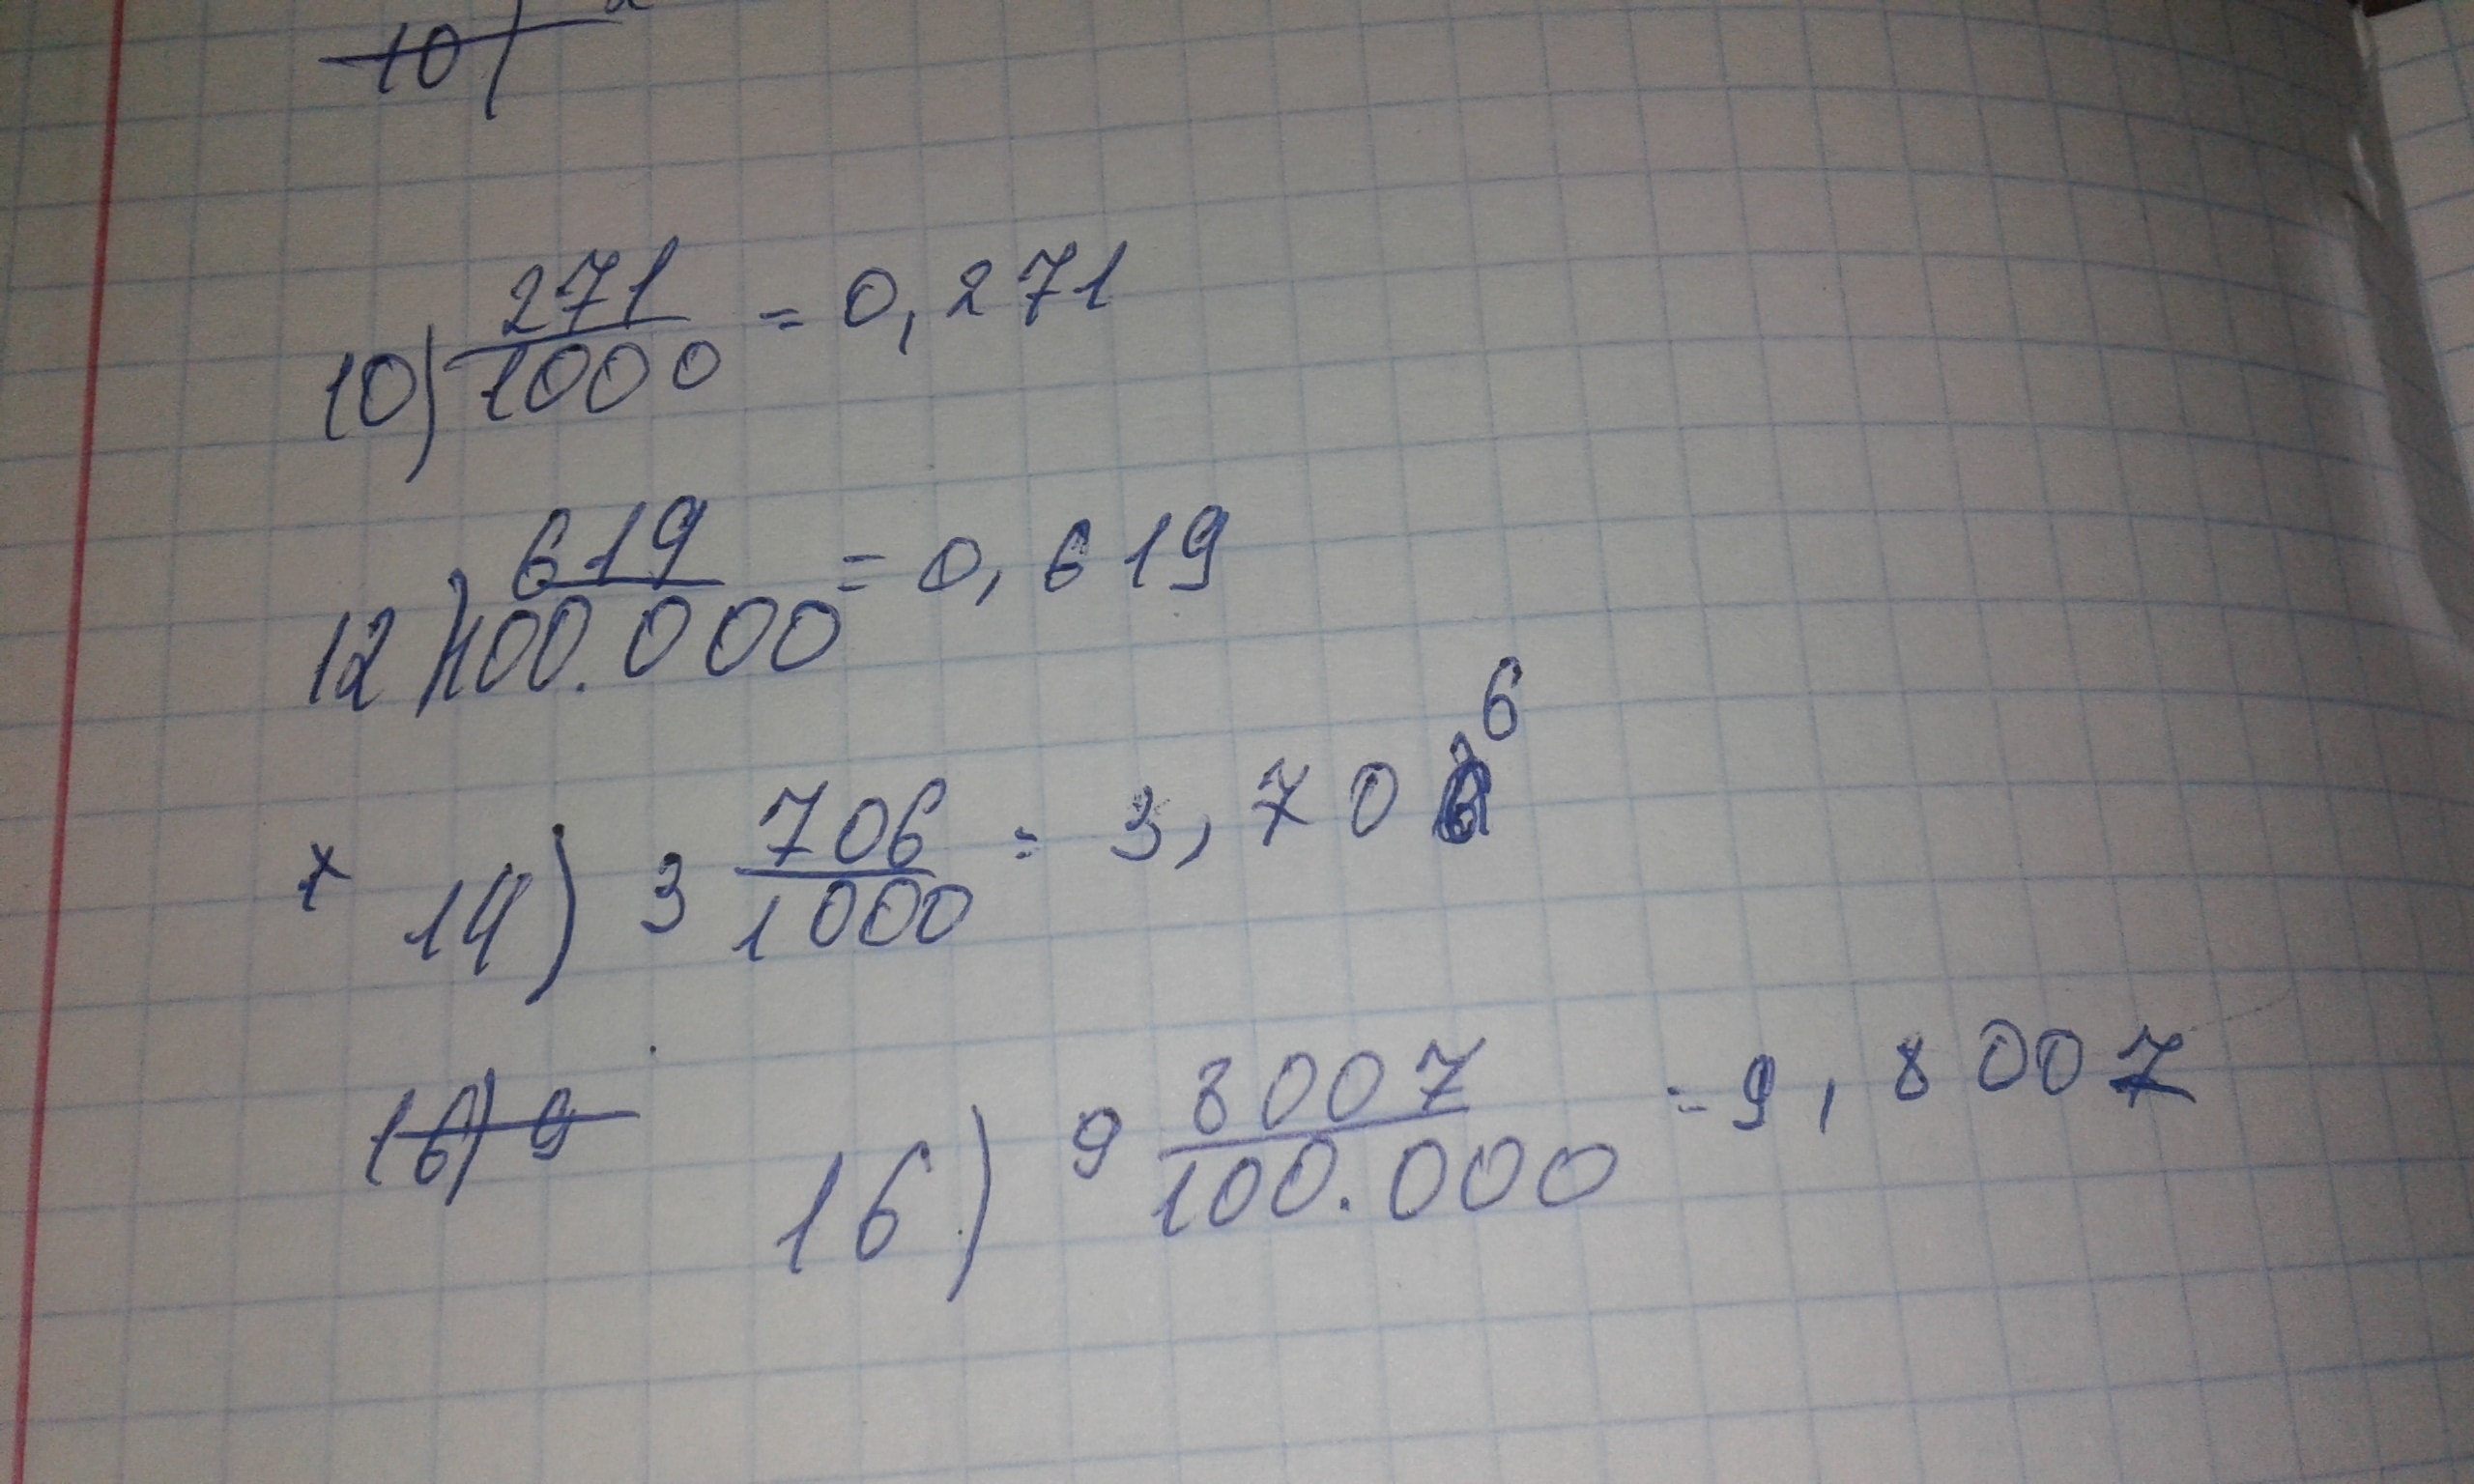 10)
10) 271/1000 = 0,271
12) 619/100.000 = 0,619
14) 3 706/1000 = 3,70 6
16) 9
16) 9 8007/100.000 = 9,8007